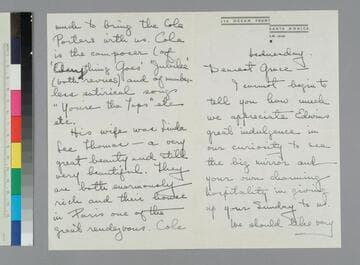 OCEAN FRONT
SANTA MONICA
Wednesday.
Dearest Grace —
I cannot begin to
tell you how much
we appreciate Edwins
great indulgence in
our curiosity to see
the big mirror and
your own charming
hospitality in giving
up your Sunday to us
We should take very
to bring the Cole
Porters with us. Cole
is the composer (of
"Anything Goes" "Jubilee"
(both revues) and of number-
less satirical song
"You're the Tops" etc
etc.
His wife was Linda
Lee Thomas — a very
great beauty and still
very beautiful. They
are both enormously
rich and their house
in Paris one of the
great rendezvous. Cole